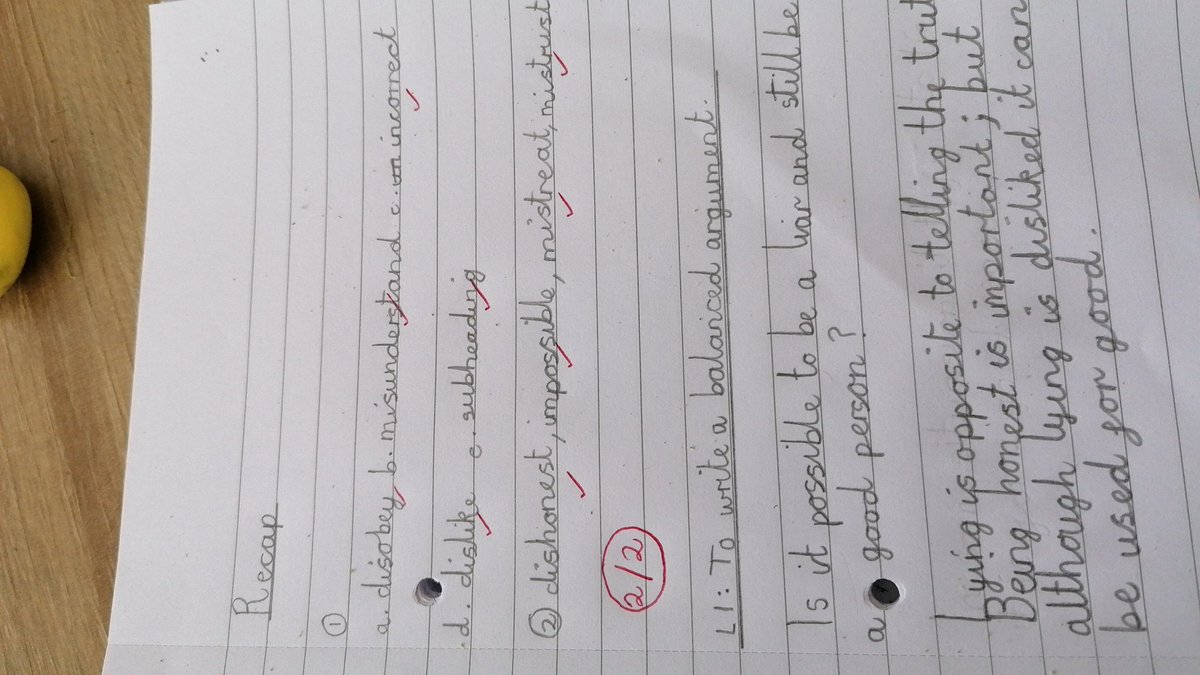 Recap
①
a. disobey b. misunderstand c. incorrect
d. dislike e. subheading
② dishonest, impossible, mistreat, mistrust
2/2
LI: To write a balanced argument.
Is it possible to be a liar and still be
a good person?
Lying is opposite to telling the trut
Being honest is important; but
although lying is disliked it can
be used for good.